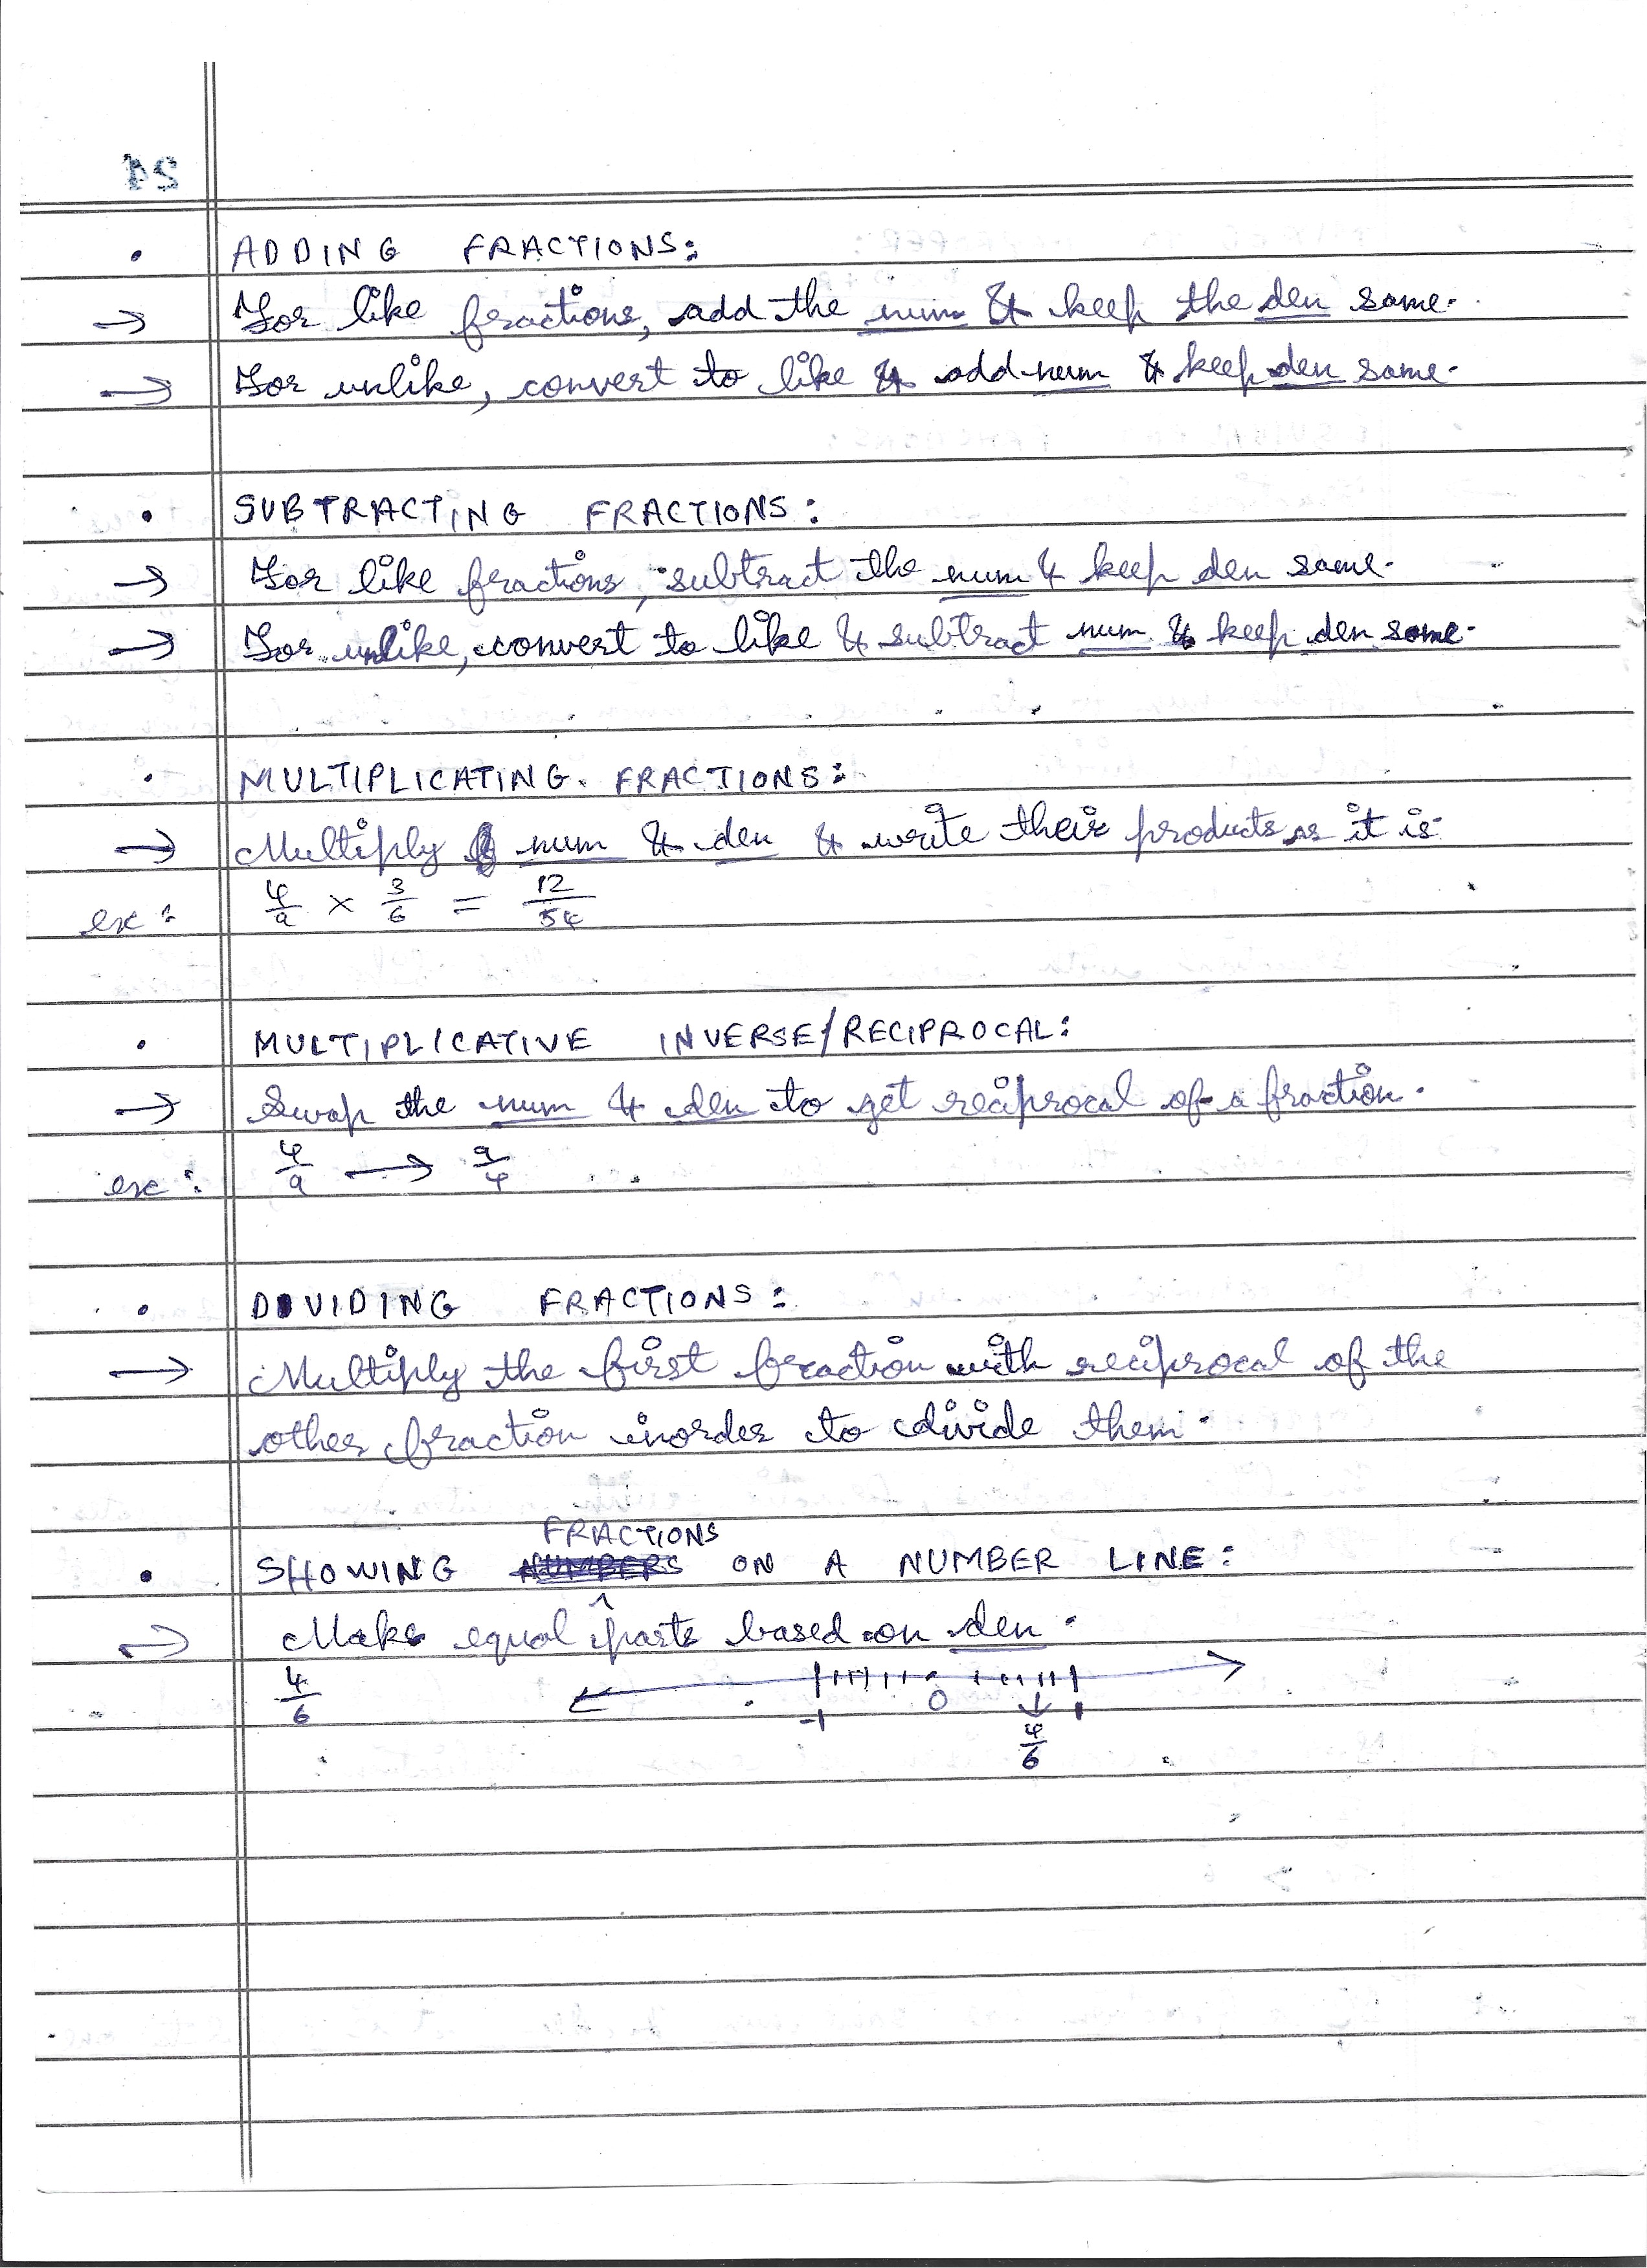 • ADDING FRACTIONS:
→ For like fractions, add the num & keep the den same.
→ For unlike, convert to like & add num & keep den same.
• SUBTRACTING FRACTIONS:
→ For like fractions, subtract the num & keep den same.
→ For unlike, convert to like & subtract num & keep den same.
• MULTIPLICATING FRACTIONS:
→ Multiply num & den & write their products as it is.
ex: 4/9 × 3/6 = 12/54
• MULTIPLICATIVE INVERSE/RECIPROCAL:
→ Swap the num & den to get reciprocal of a fraction.
ex: 4/9 → 9/4
• DIVIDING FRACTIONS:
→ Multiply the first fraction with reciprocal of the
other fraction inorder to divide them.
• SHOWING FRACTIONS ON A NUMBER LINE:
→ Make equal parts based on den.
4/6
-1 0 1
4/6